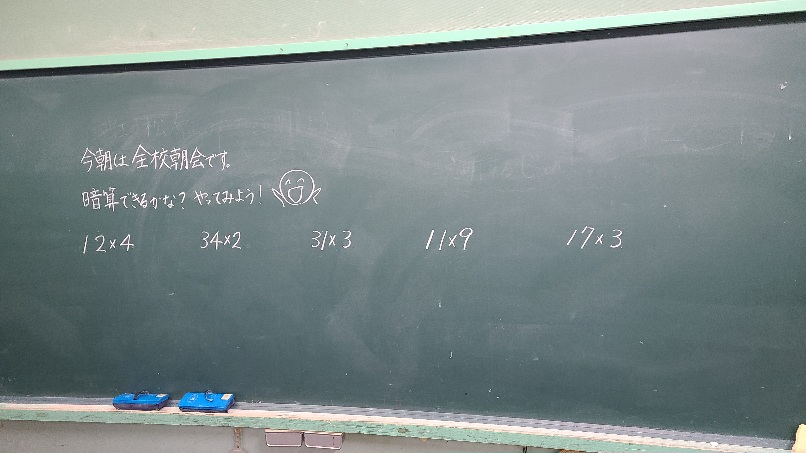 今朝は全校朝会です。
暗算できるかな？やってみよう！
12×4 34×2 31×3 11×9 17×3